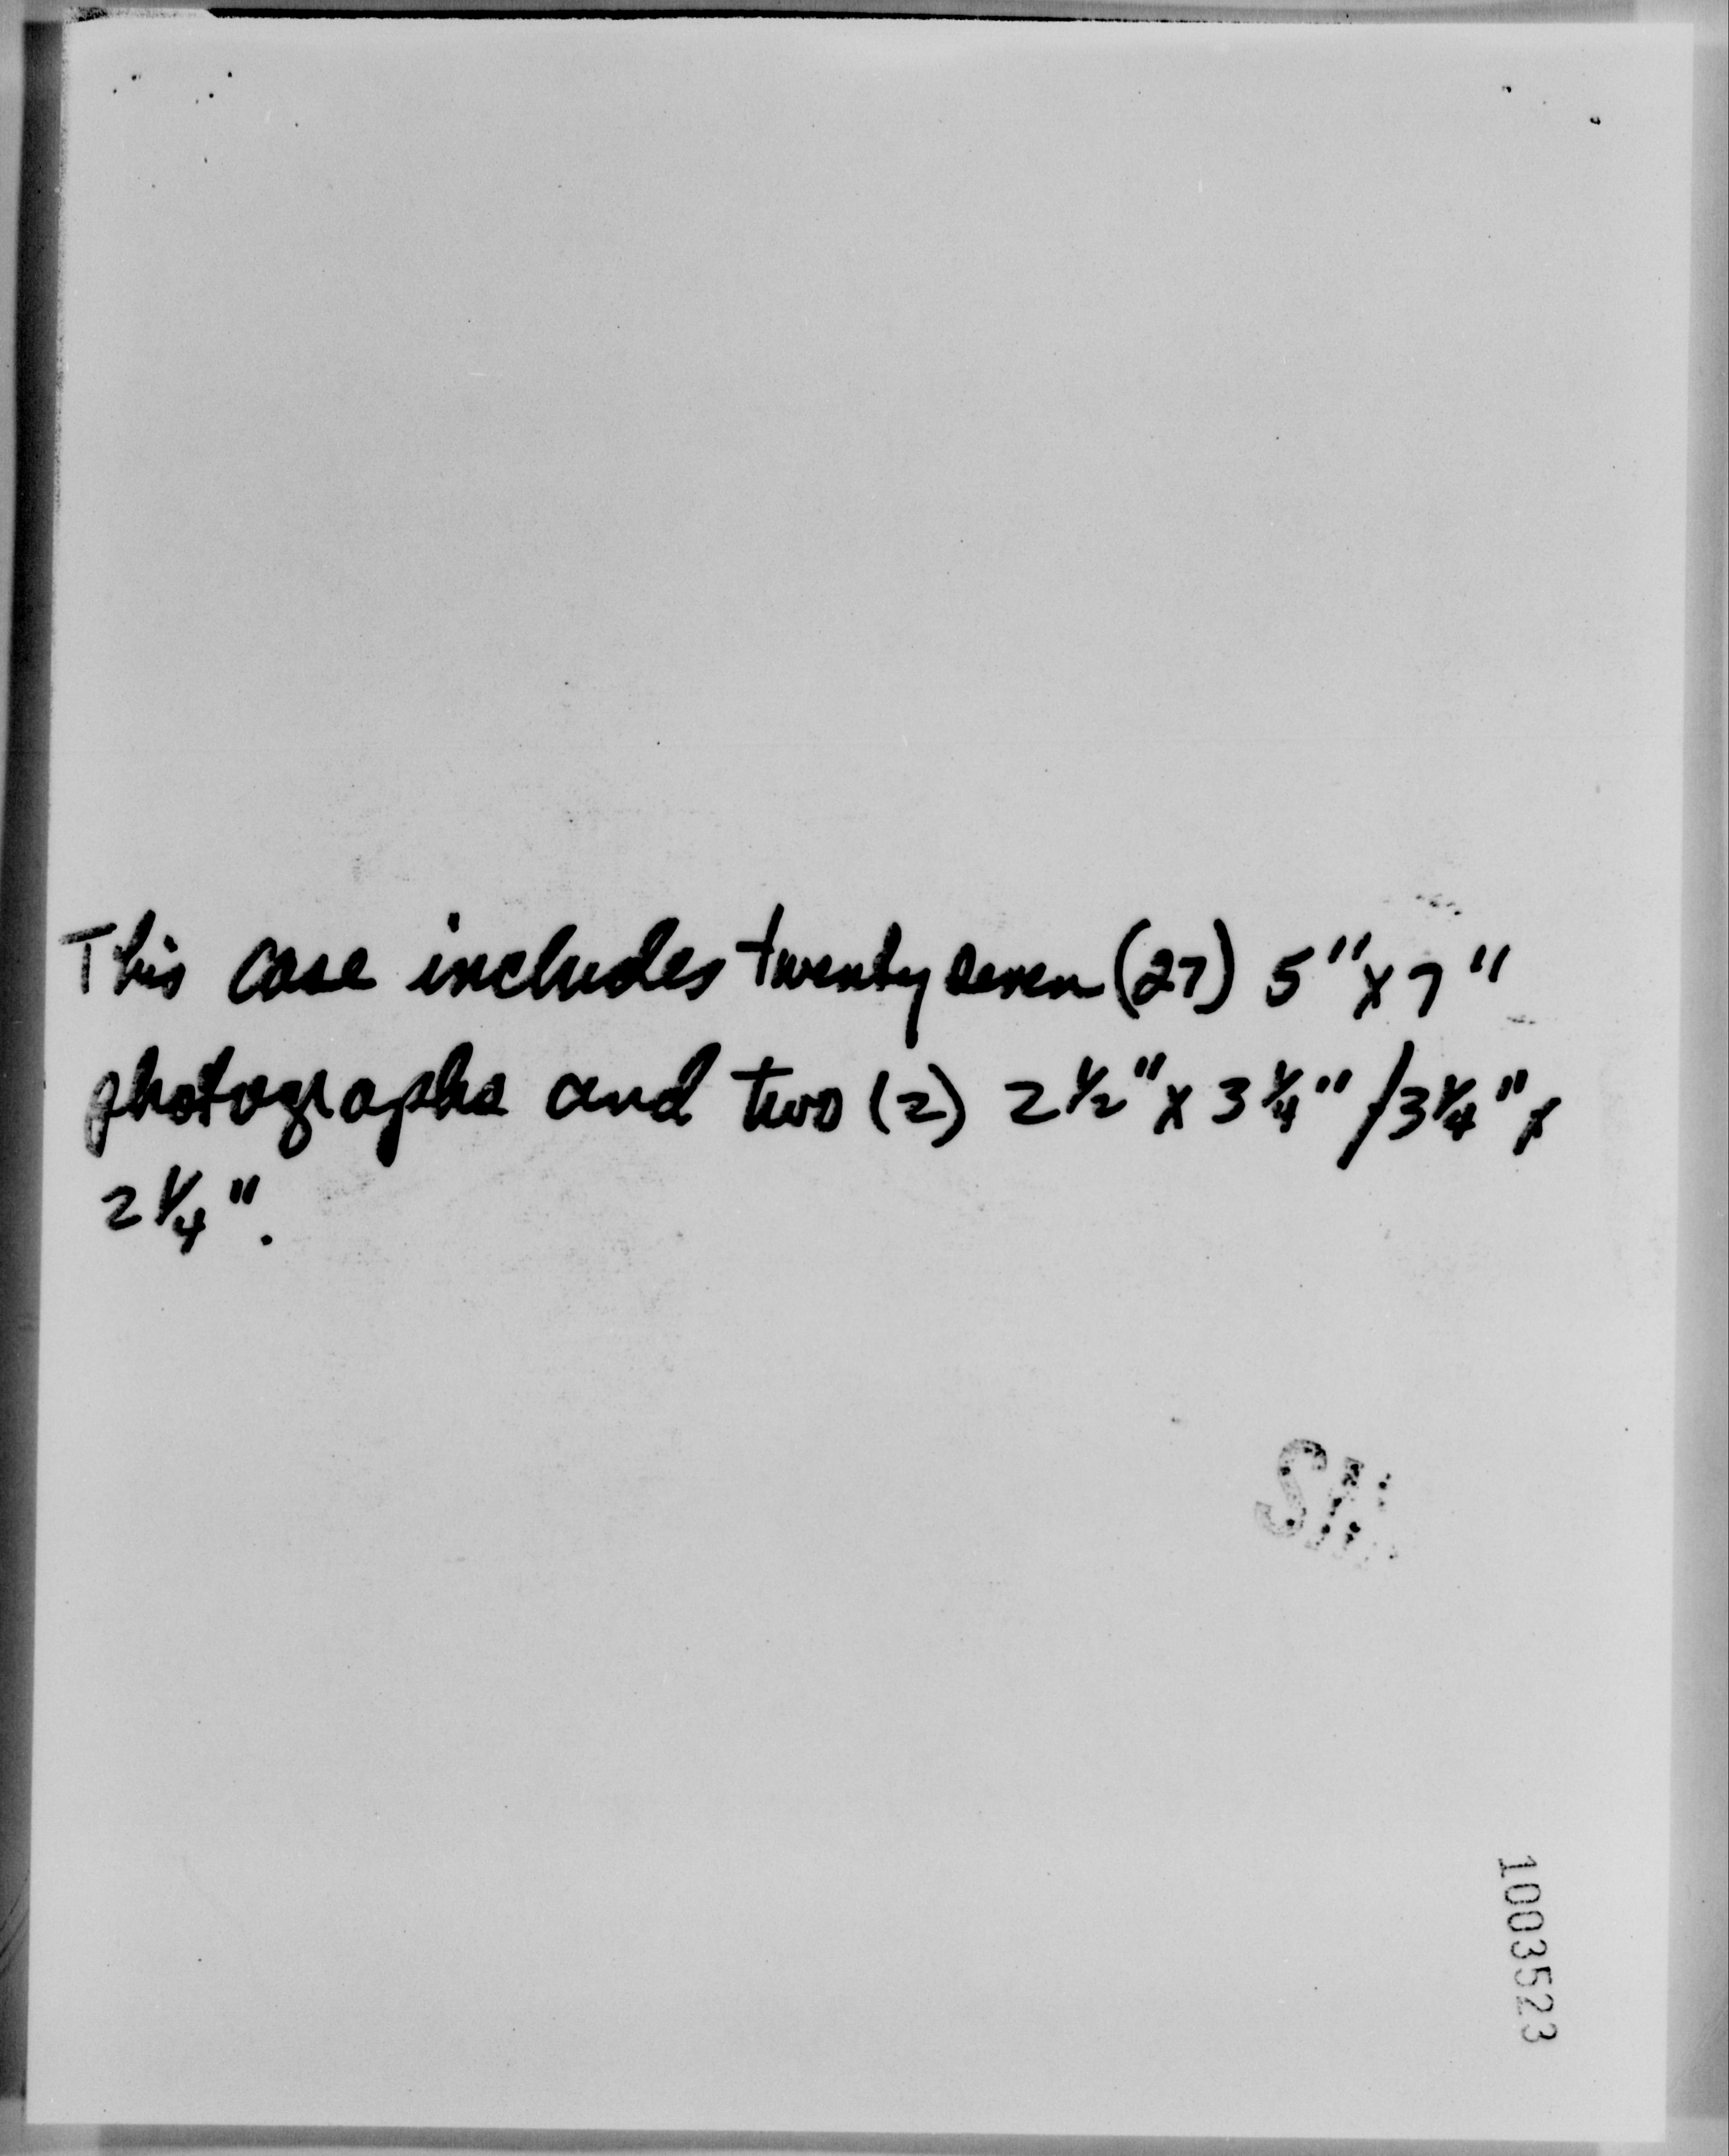 This case includes twenty seven (27) 5" x 7"
photographs and two (2) 2 1/2" x 3 1/4" / 3 1/4" x
2 1/4".
1003523